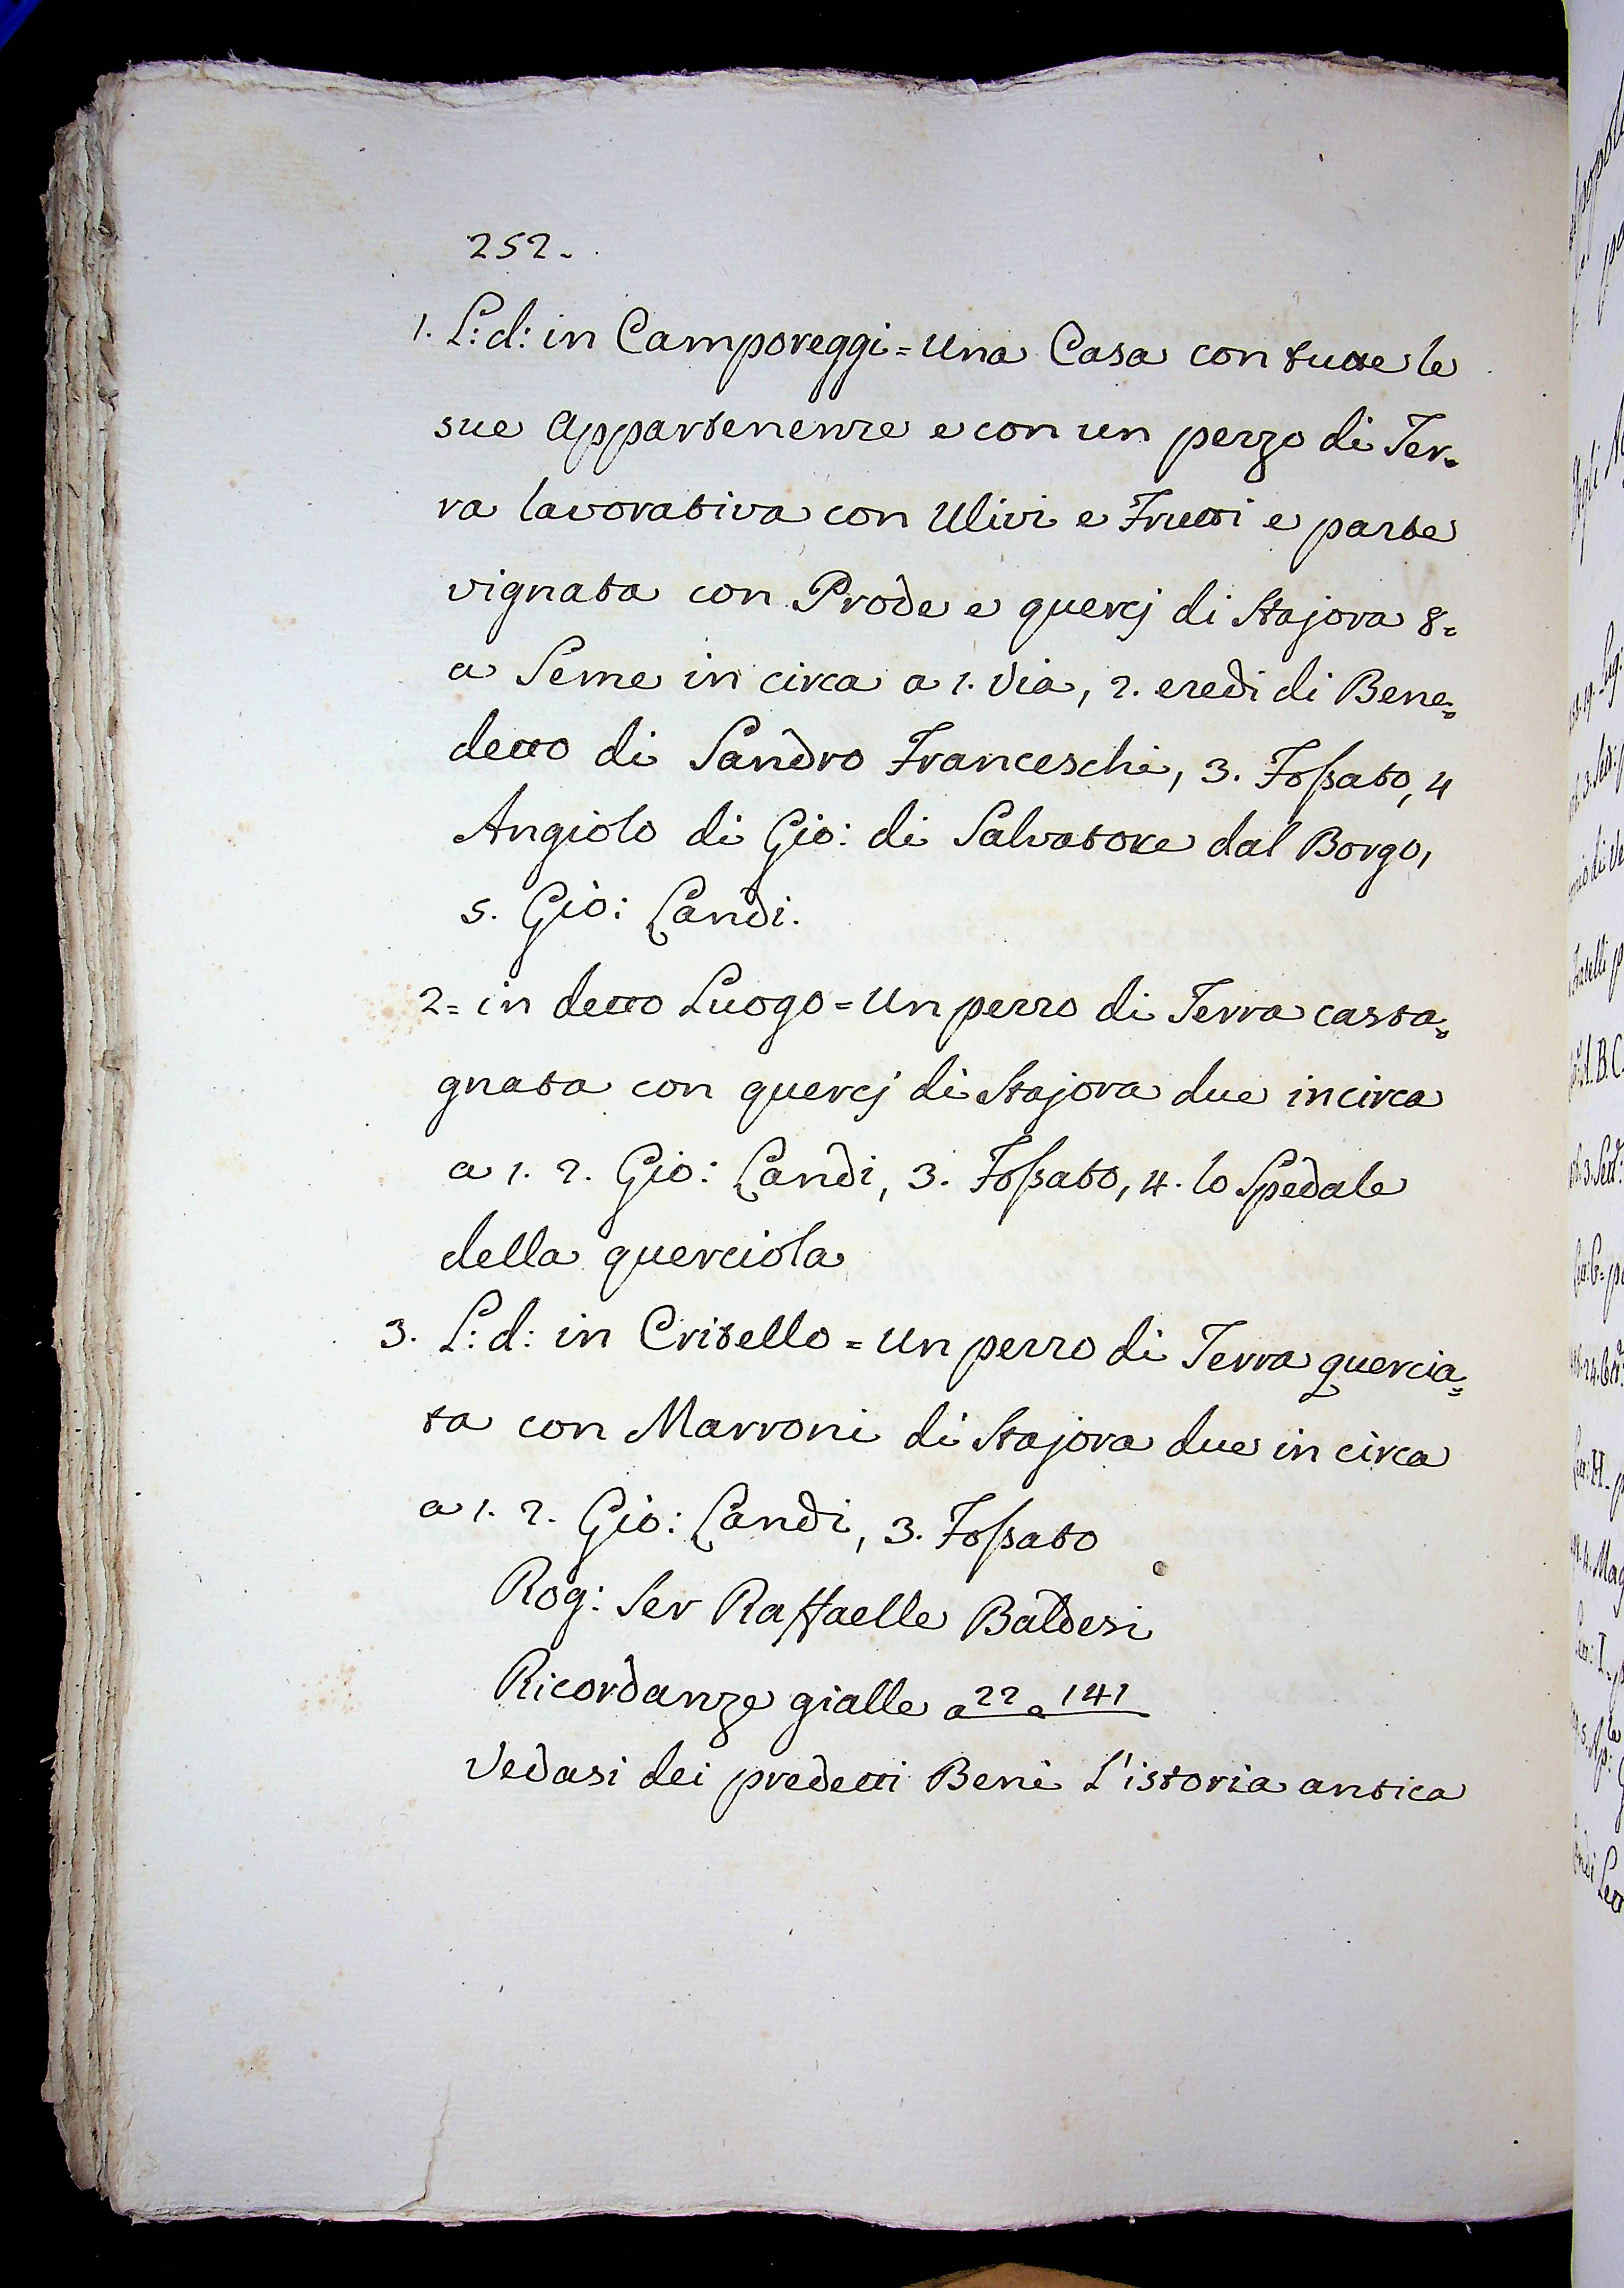 252.
1. L: d: in Camporeggi = Una Casa con tutte le
sue Appartenenze e con un pezzo di Ter=
ra lavorativa con Ulivi e Frutti e parte
vignata con Prode e quercj di Stajora 8=
a Seme in circa a 1. Via, 2. eredi di Bene=
detto di Sandro Franceschi, 3. Fossato, 4
Angiolo di Gio: di Salvatore dal Borgo,
5. Gio: Landi.
2= in detto Luogo = Un pezzo di Terra casta=
gnata con quercj di Stajora due incirca
a 1. 2. Gio: Landi, 3. Fossato, 4. lo Spedale
della querciola
3. L: d: in Critello = Un pezzo di Terra quercia=
ta con Marroni di Stajora due in circa
a 1. 2. Gio: Landi, 3. Fossato
Rog: Ser Raffaelle Baldesi
Ricordanze gialle a 22 a 141
Vedasi dei predetti Beni L'istoria antica